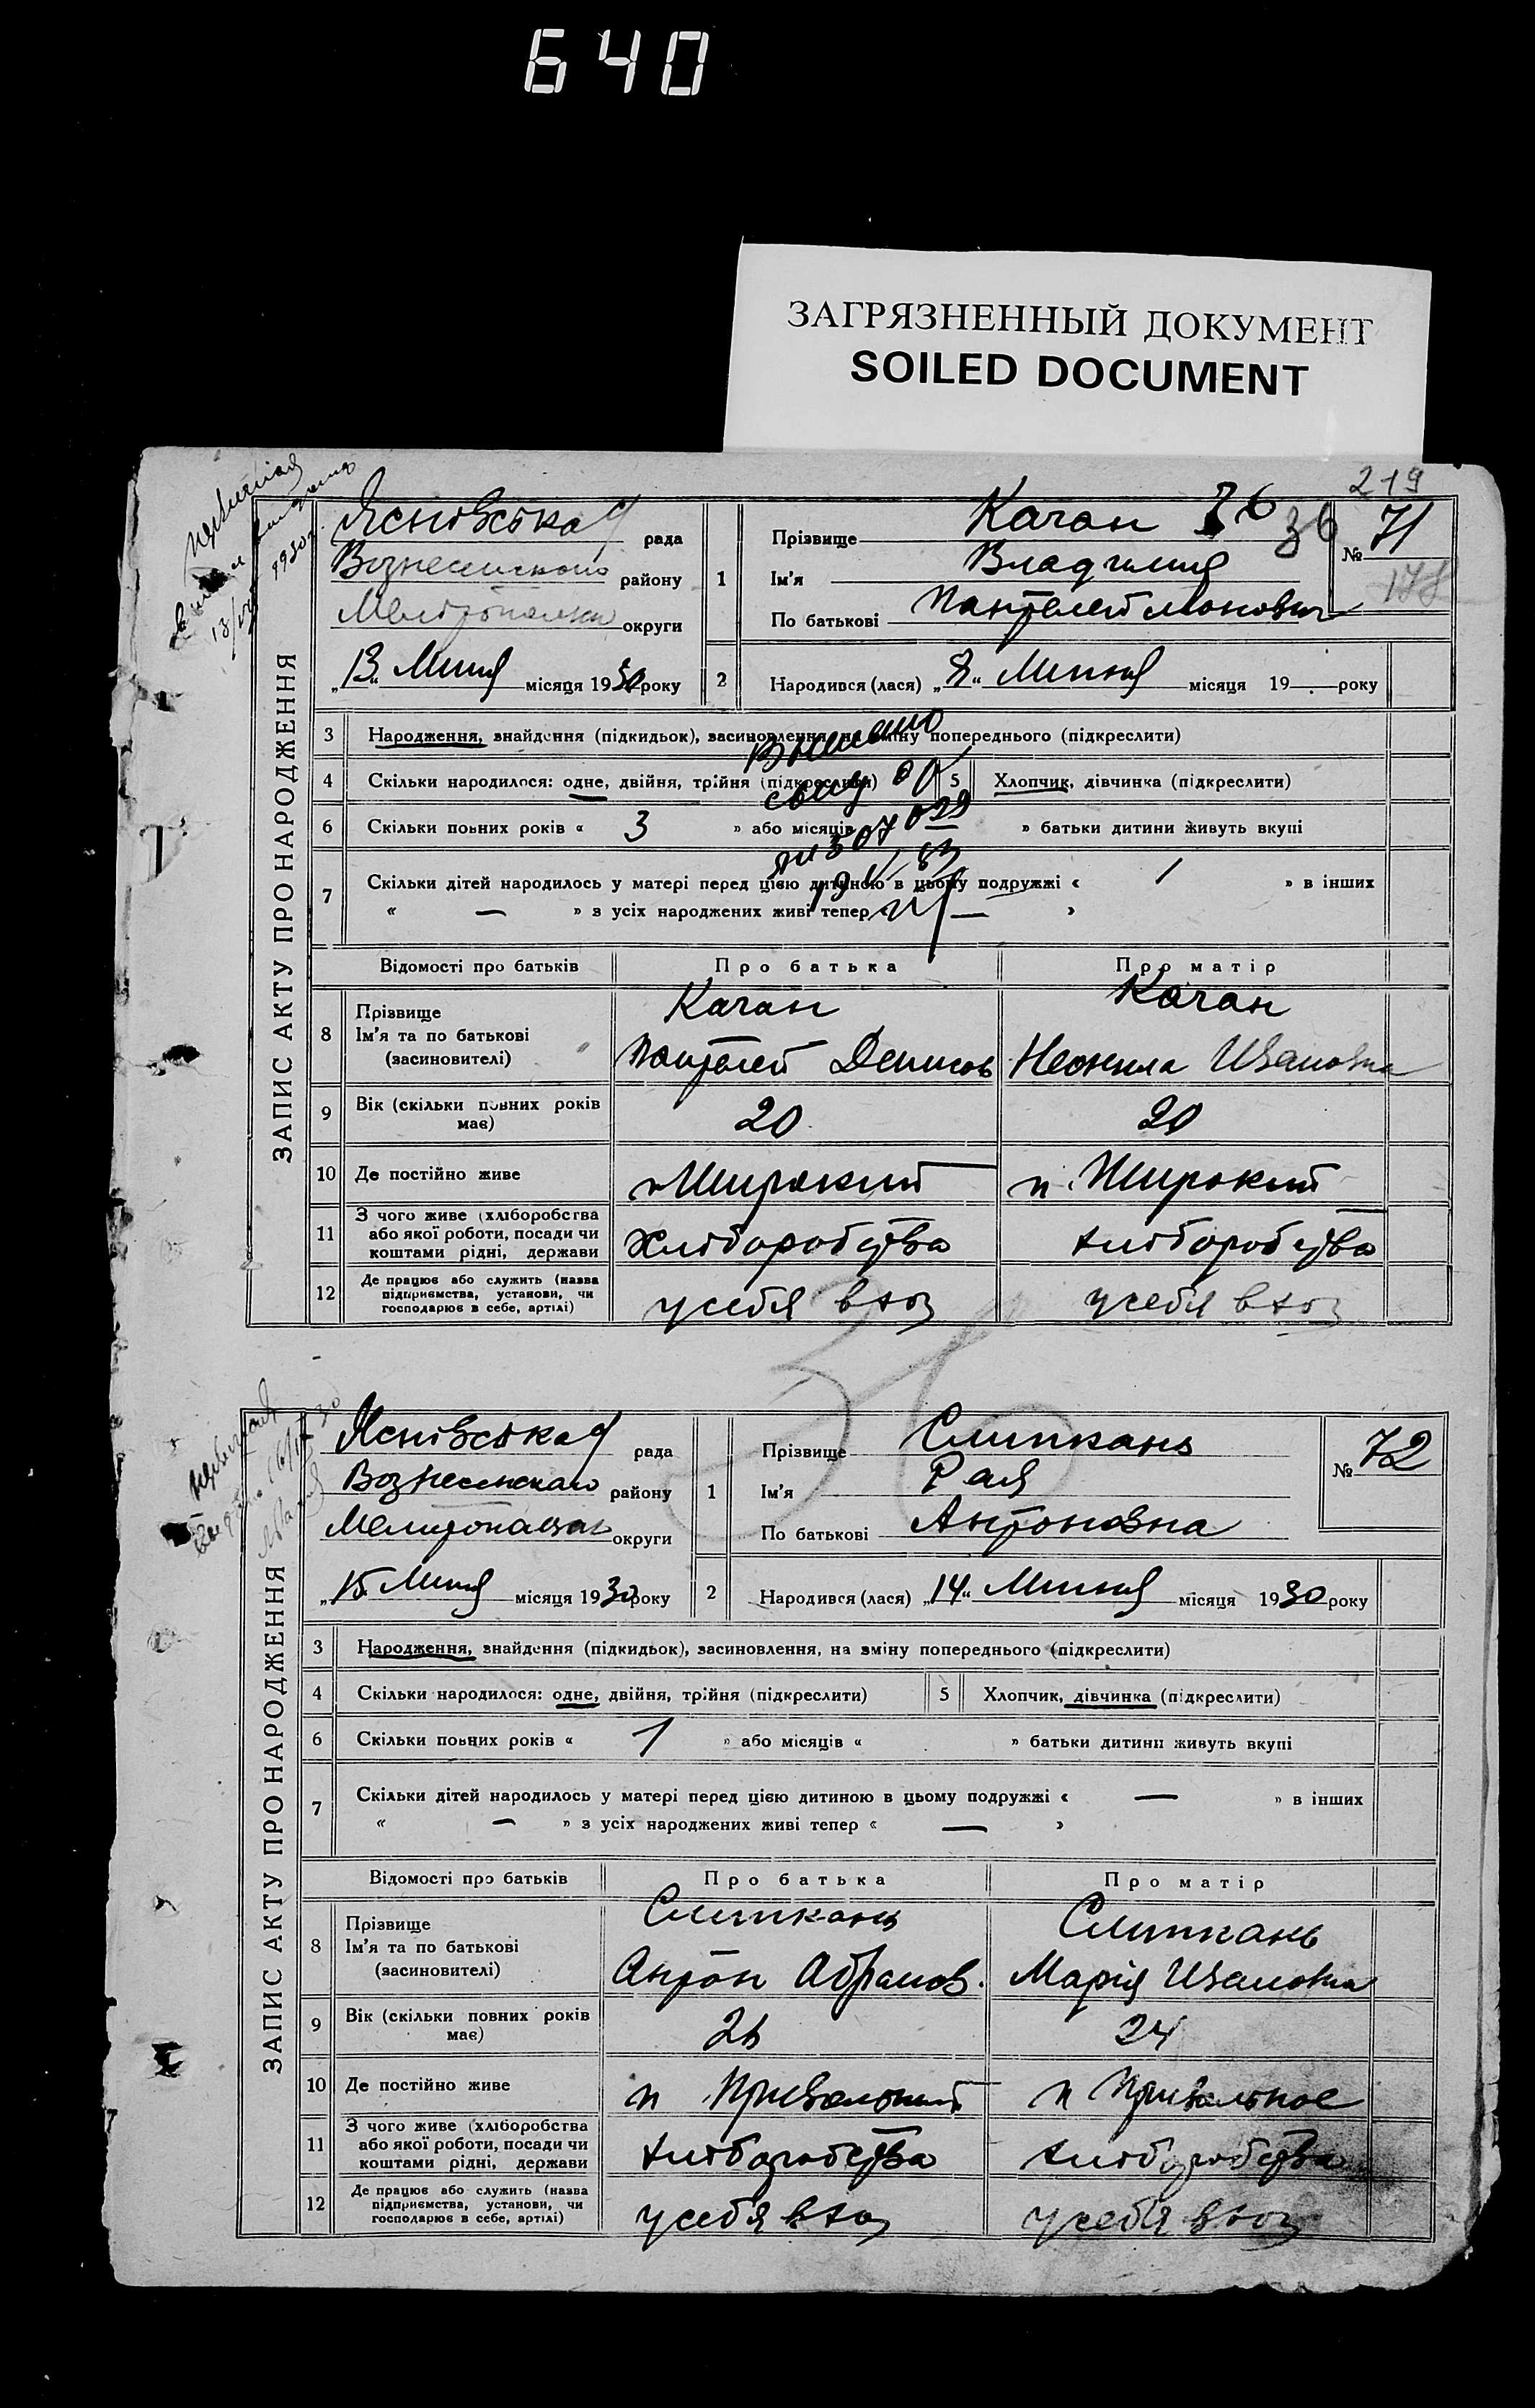 640
ЗАГРЯЗНЕННЫЙ ДОКУМЕНТ
SOILED DOCUMENT
219
ЗАПИС АКТУ ПРО НАРОДЖЕННЯ
Ясновська рада
Вознесенского району
округи
„13“ Липня місяця 1930 року
1 Прізвище Качан 36
№ 71
178
Ім'я Владимир
По батькові Пантелеймонович
2 Народився (лася) „8“ Липня місяця 19 . року
3 Народження, знайдення (підкидьок), засиновлення, на зміну попереднього (підкреслити)
4 Скільки народилося: одне, двійня, трійня (підкреслити) 5 Хлопчик, дівчинка (підкреслити)
6 Скільки повних років « 3 » або місяців » батьки дитини живуть вкупі
7 Скільки дітей народилось у матері перед цією дитиною в цьому подружжі « 1 » в інших
« — » з усіх народжених живі тепер « — »
Відомості про батьків Про батька Про матір
8 Прізвище Качан Качан
Ім'я та по батькові Пантелей Денисов Неонила Ивановна
(засиновителі)
9 Вік (скільки повних років має) 20 20
10 Де постійно живе п Широкий п. Широкий
11 З чого живе (хліборобства
або якої роботи, посади чи
коштами рідні, держави Хліборобства хліборобства
12 Де працює або служить (назва
підприємства, установи, чи
господарює в себе, артілі) у себя в хоз у себя в хоз
36
ЗАПИС АКТУ ПРО НАРОДЖЕННЯ
Ясновська рада
Вознесенского району
округи
„15 Липня місяця 1930 року
1 Прізвище Слипкань
№ 72
Ім'я Рая
По батькові Антоновна
2 Народився (лася) „14“ Липня місяця 1930 року
3 Народження, знайдення (підкидьок), засиновлення, на зміну попереднього (підкреслити)
4 Скільки народилося: одне, двійня, трійня (підкреслити) 5 Хлопчик, дівчинка (підкреслити)
6 Скільки повних років « 1 » або місяців « » батьки дитини живуть вкупі
7 Скільки дітей народилось у матері перед цією дитиною в цьому подружжі « — » в інших
« — » з усіх народжених живі тепер « — »
Відомості про батьків Про батька Про матір
8 Прізвище Слипкань Слипкань
Ім'я та по батькові Антон Абрамов. Марія Ивановна
(засиновителі)
9 Вік (скільки повних років має) 24
10 Де постійно живе п Привольный п Привольное
11 З чого живе (хліборобства
або якої роботи, посади чи
коштами рідні, держави хліборобства хліборобства
12 Де працює або служить (назва
підприємства, установи, чи
господарює в себе, артілі) у себя в хоз у себя в хоз